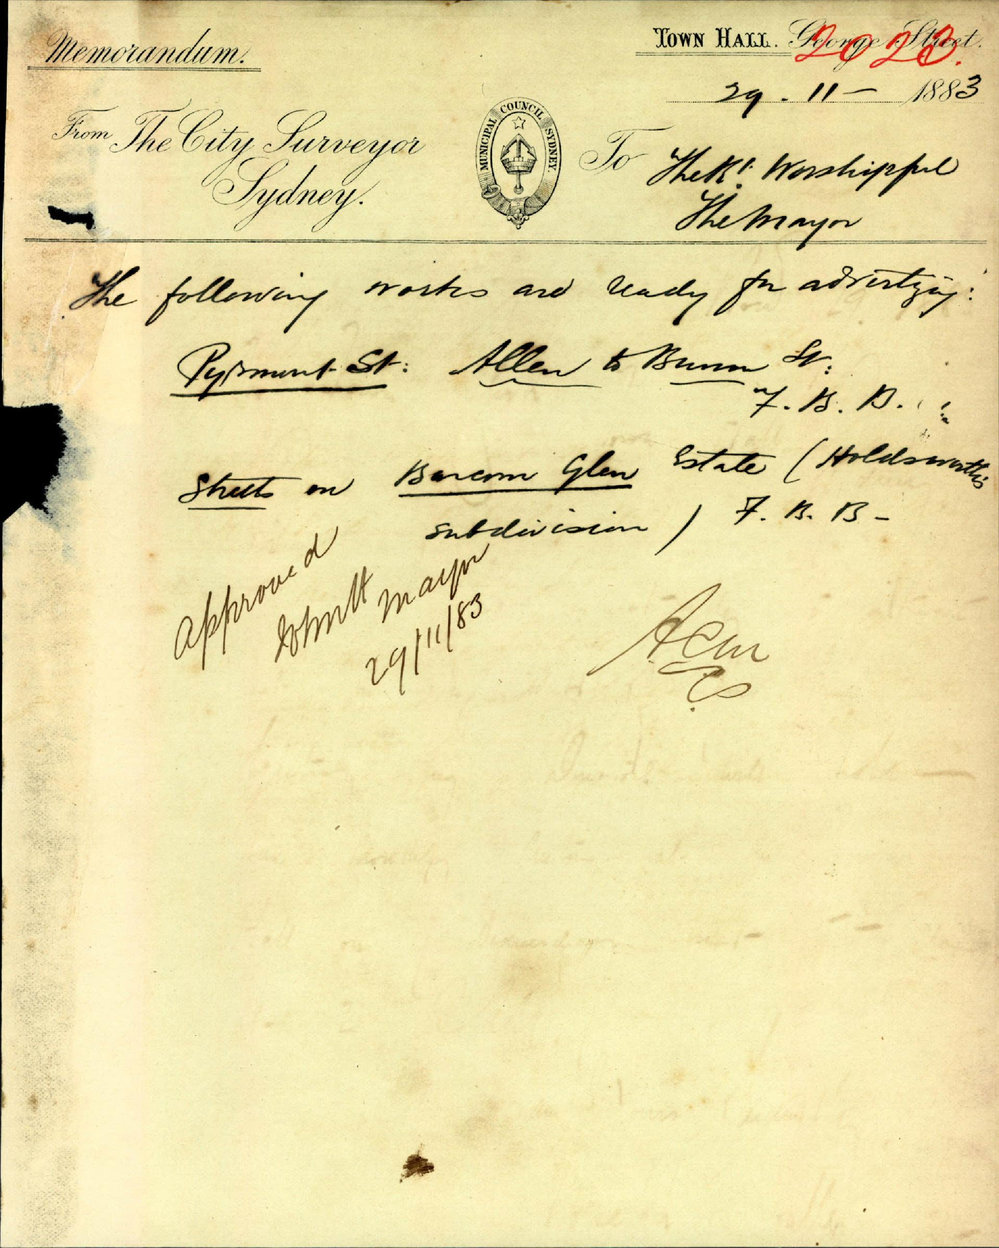 Memorandum.
Town Hall. George Street.
2023.
29 . 11 - 1883
From The City Surveyor
Sydney.
MUNICIPAL COUNCIL SYDNEY.
To The Rt. Worshipful
The Mayor
The following works are ready for advertizing:
Pyrmont St: Allen to Bunn St:
F. B. B.
Streets on Barcom Glen Estate (Holdsworth's
subdivision) F. B. B -
Approved
Mayor
29/11/83